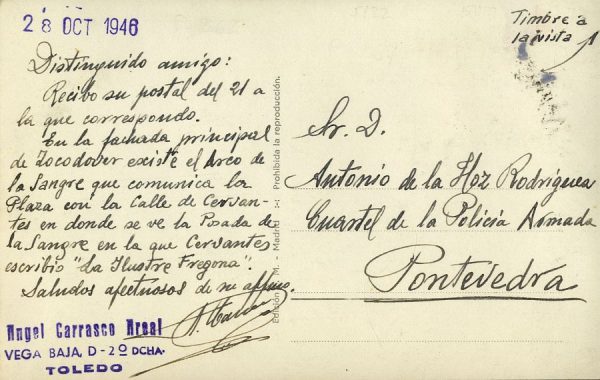 28 OCT 1946
Distinguido amigo:
Recibo su postal del 21 a
la que correspondo.
En la fachada principal
de Zocodover existe el Arco de
la Sangre que comunica la
Plaza con la Calle de Cervan-
tes en donde se ve la Posada de
la Sangre en la que Cervantes
escribió "La Ilustre Fregona".
Saludos afectuosos de su affmo.
Angel Carrasco Areal
VEGA BAJA, D-2º DCHA.
TOLEDO
M. - Madrid Prohibida la reproducción.
Timbre a
la vista
Sr. D.
Antonio de la Hoz Rodriguez
Cuartel de la Policía Armada
Pontevedra